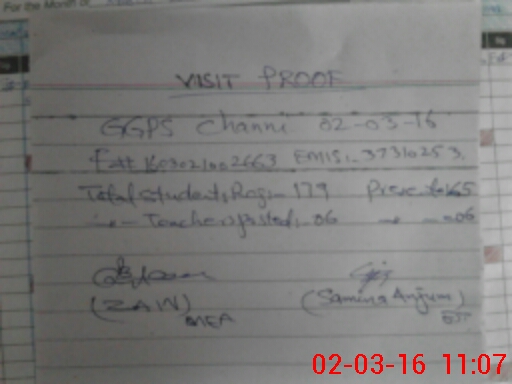 For the Month of
VISIT PROOF
GGPS Channi 02-03-16
EMIS:- 37310253.
Total students Reg:- 179 Present 165
Teachers posted:- 06 06
(ZAIN) MEA
(Samina Anjum)
02-03-16 11:07